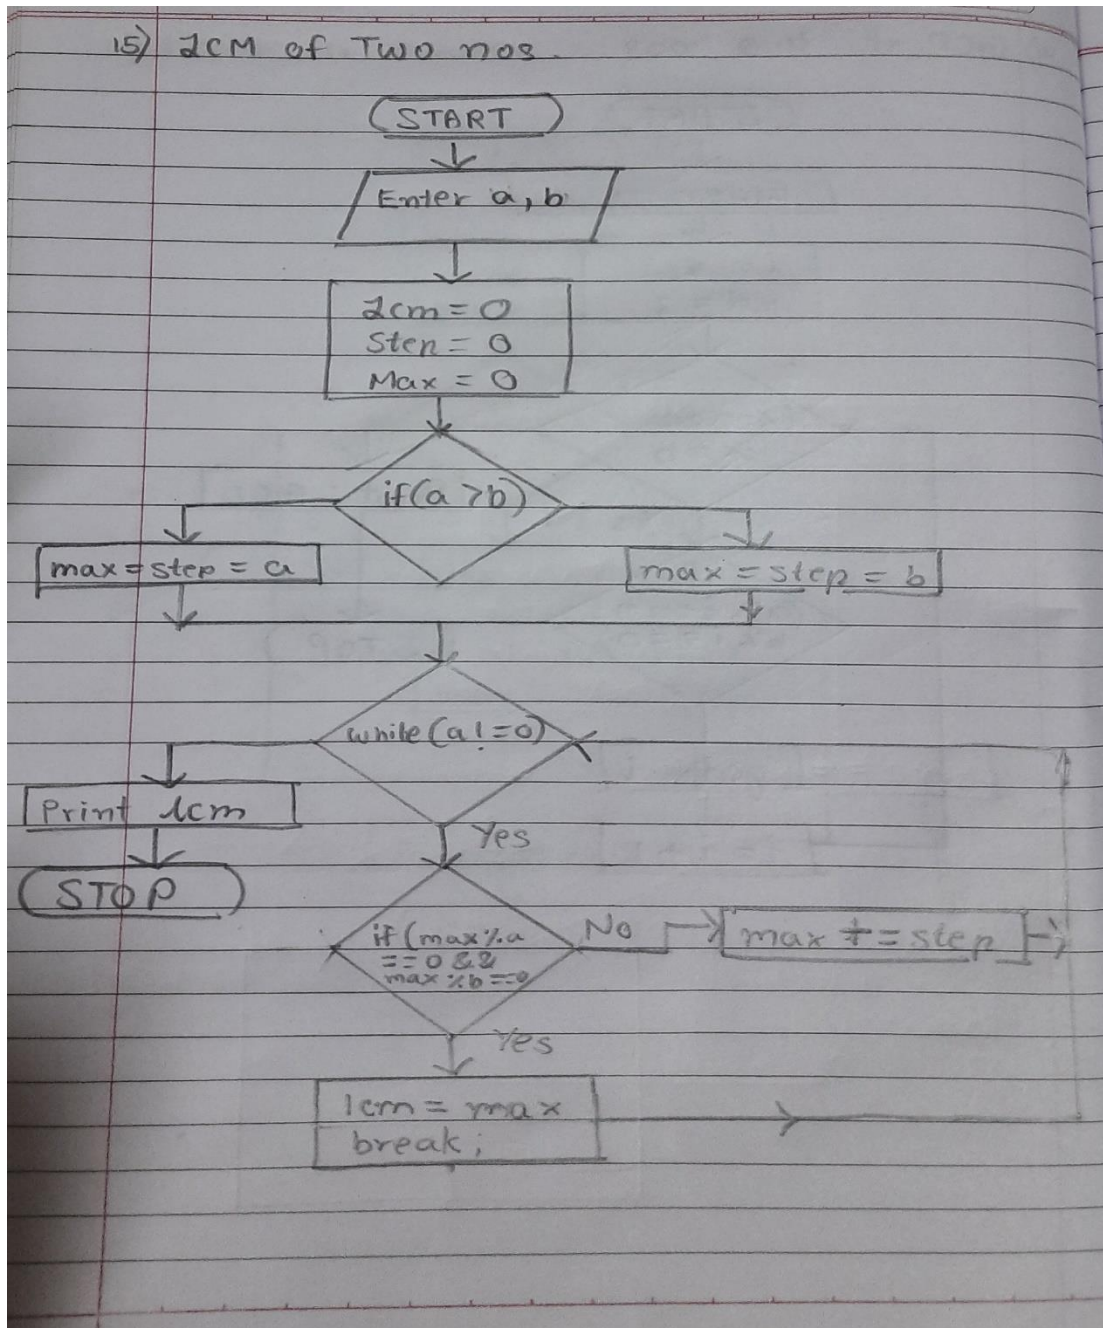 15) LCM of Two nos.
START
Enter a, b
Lcm = 0
Step = 0
Max = 0
if(a >b)
max = step = a
max = step = b
while(a!=0)
Print lcm
STOP
Yes
if (max%a
==0 &&
max%b==0
No
max += step
Yes
lcm = max
break;